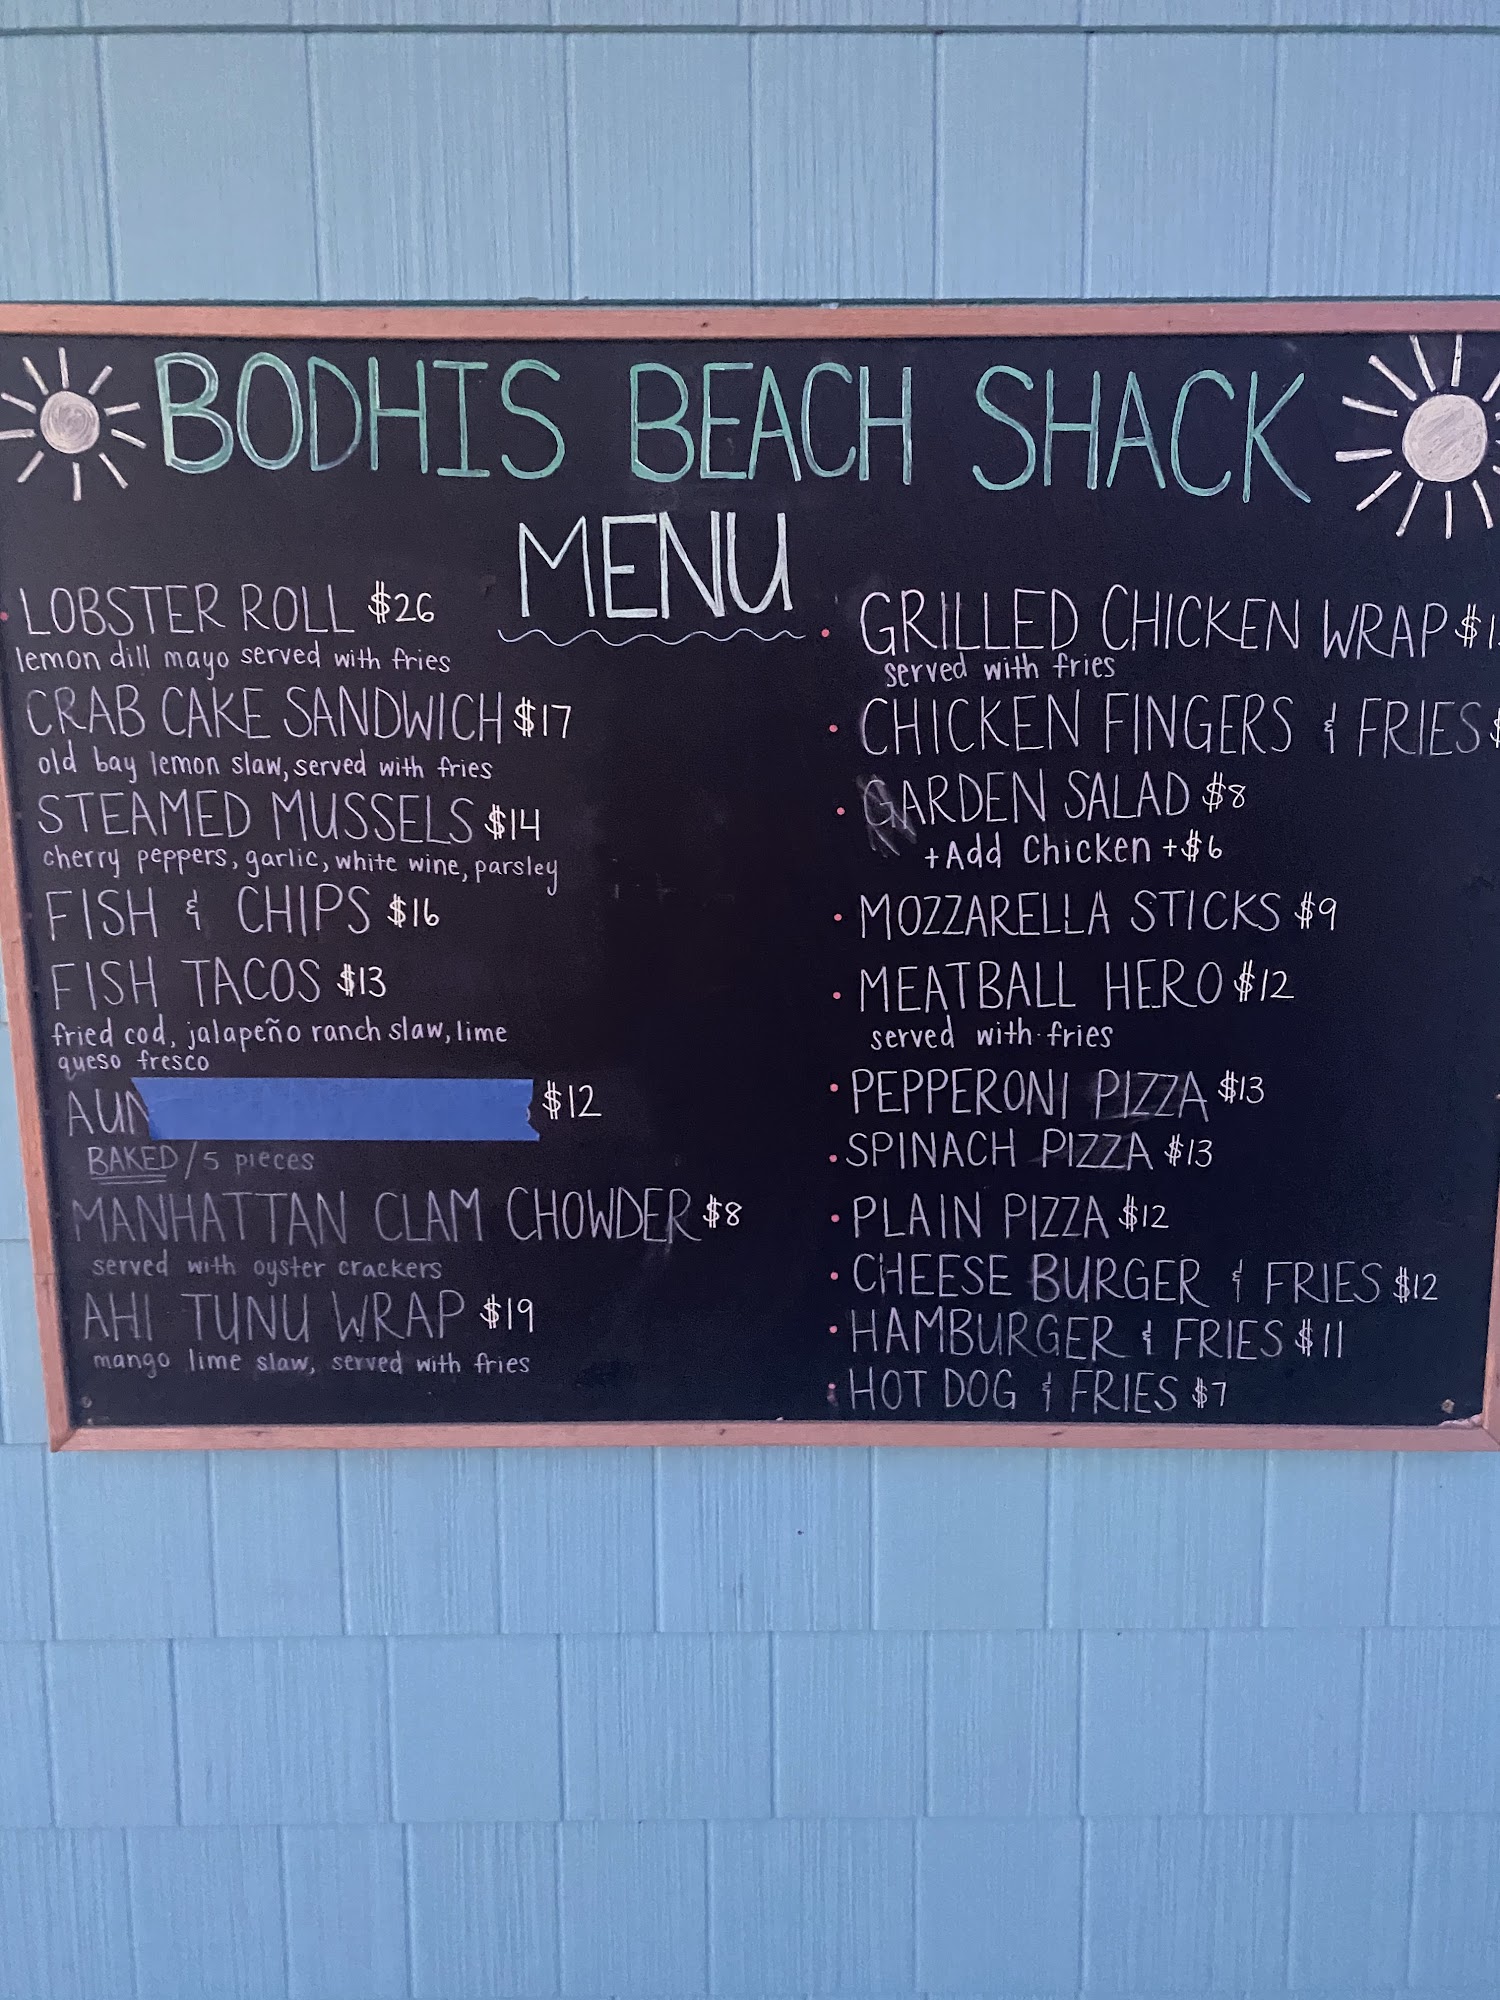 BODHIS BEACH SHACK
MENU
LOBSTER ROLL $26
lemon dill mayo served with fries
CRAB CAKE SANDWICH $17
old bay lemon slaw, served with fries
STEAMED MUSSELS $14
cherry peppers, garlic, white wine, parsley
FISH & CHIPS $16
FISH TACOS $13
fried cod, jalapeño ranch slaw, lime
queso fresco
$12
BAKED / 5 pieces
MANHATTAN CLAM CHOWDER $8
served with oyster crackers
AHI TUNU WRAP $19
mango lime slaw, served with fries
• GRILLED CHICKEN WRAP
served with fries
• CHICKEN FINGERS & FRIES
• GARDEN SALAD $8
+Add Chicken +$6
• MOZZARELLA STICKS $9
• MEATBALL HERO $12
served with fries
• PEPPERONI PIZZA $13
• SPINACH PIZZA $13
• PLAIN PIZZA $12
• CHEESE BURGER & FRIES $12
• HAMBURGER & FRIES $11
• HOT DOG & FRIES $7